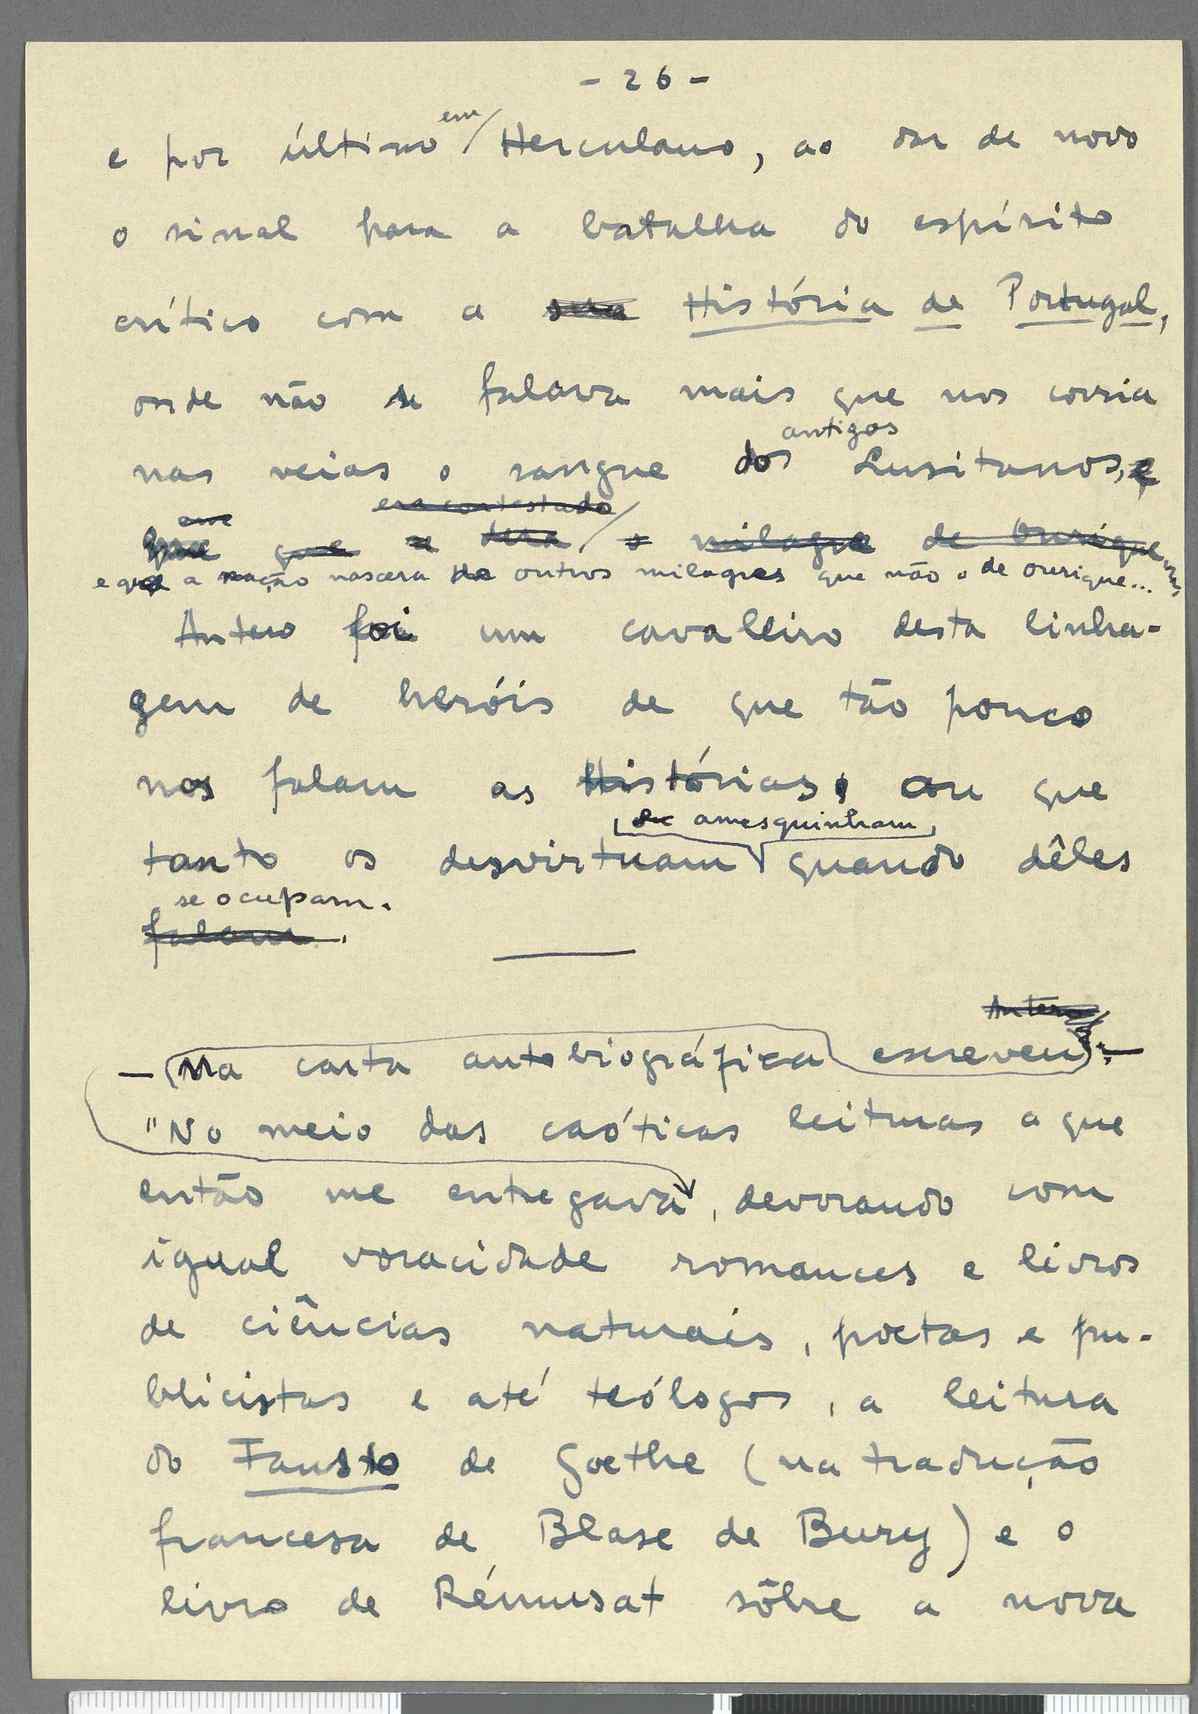 - 26 -
em
e por último / Herculano, ao dar de novo
o sinal para a batalha do espírito
crítico com a sua História de Portugal,
onde não se falava mais que nos corria
antigos
nas veias o sangue dos Lusitanos, e
era contestado
que o milagre de Ourique
e que a nação nascera de outros milagres que não o de Ourique...
Antero foi um cavalleiro desta linha-
gem de heróis de que tão pouco
nos falam as Histórias, ou que
amesquinham
tanto os desvirtuam quando dêles
se ocupam.
falam.
Antero
— (Na carta autobiográfica escreveu) : —
"No meio das caóticas leituras a que
então me entregava, devorando com
igual voracidade romances e livros
de ciências naturais, poetas e pu-
blicistas e até teólogos, a leitura
do Fausto de Goethe (na tradução
francesa de Blase de Bury) e o
livro de Rémusat sôbre a nova